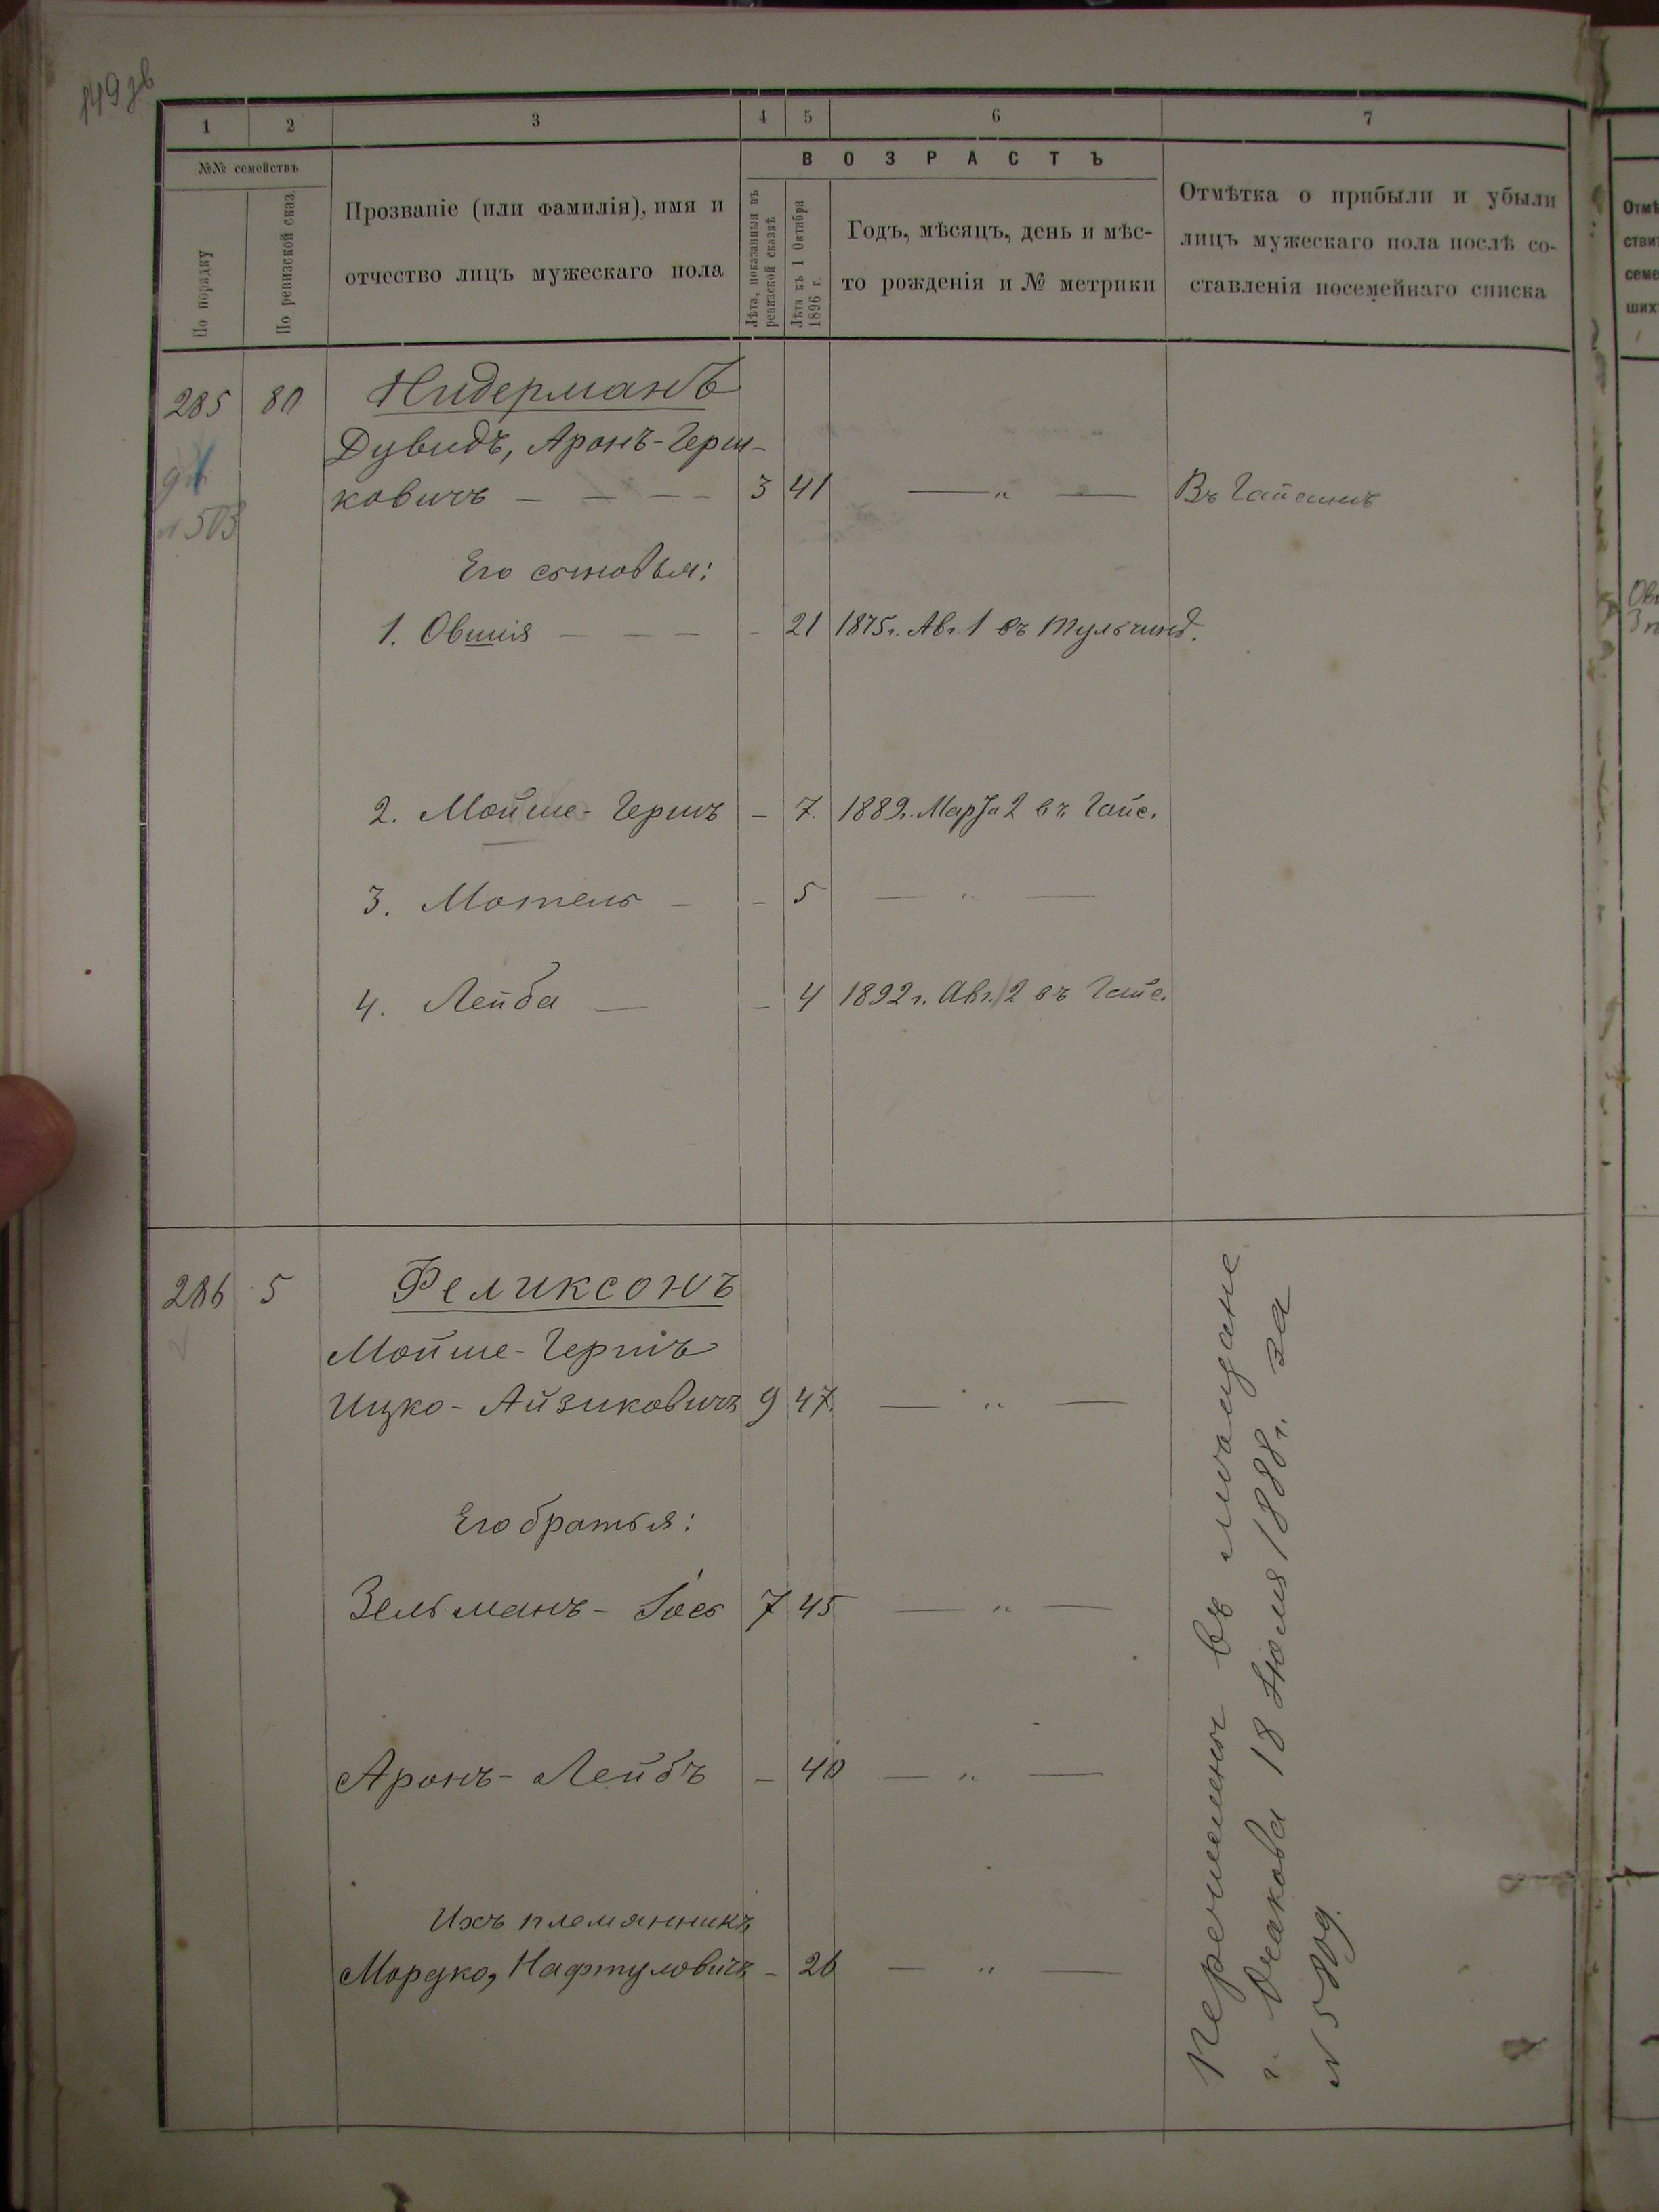 149 зв
1 2 3 4 5 6 7
№№ семействъ
По порядку
По ревизской сказ.
Прозваніе (или фамилія), имя и
отчество лицъ мужескаго пола
ВОЗРАСТЪ
Лѣта, показанныя въ
ревизской сказкѣ
Лѣта къ 1 Октября
1896 г.
Годъ, мѣсяцъ, день и мѣс-
то рожденія и № метрики
Отмѣтка о прибыли и убыли
лицъ мужескаго пола послѣ со-
ставленія посемейнаго списка
285 80 Нидерманъ
Дувидъ, Аронъ-Герш-
ковичъ — — — 3 41 — „ — Въ Гайсинѣ
503
Его сыновья:
1. Овшія — — — - 21 1875г. Авг. 1 въ Тульчинѣ.
2. Мойше-Гершъ - 7. 1889г. Марта 2 въ Гайс.
3. Мотель - - 5 — „ —
4. Лейба — - 4 1892г. Авг. 2 въ Гайс.
286 5 Феликсонъ
Мойше-Гершъ
Ицко-Айзиковичъ 9 47. — „ —
Его братья:
Зельманъ- Іось 7 45 — „ —
Аронъ-Лейбъ - 40 — „ —
Ихъ племянникъ
Мордко, Нафтуловичъ - 26 — „ —
Перечислены въ мѣщане
г. Очакова 18 Іюля 1888г. за
№ 5809.
Отмѣ
стви
семе
ших